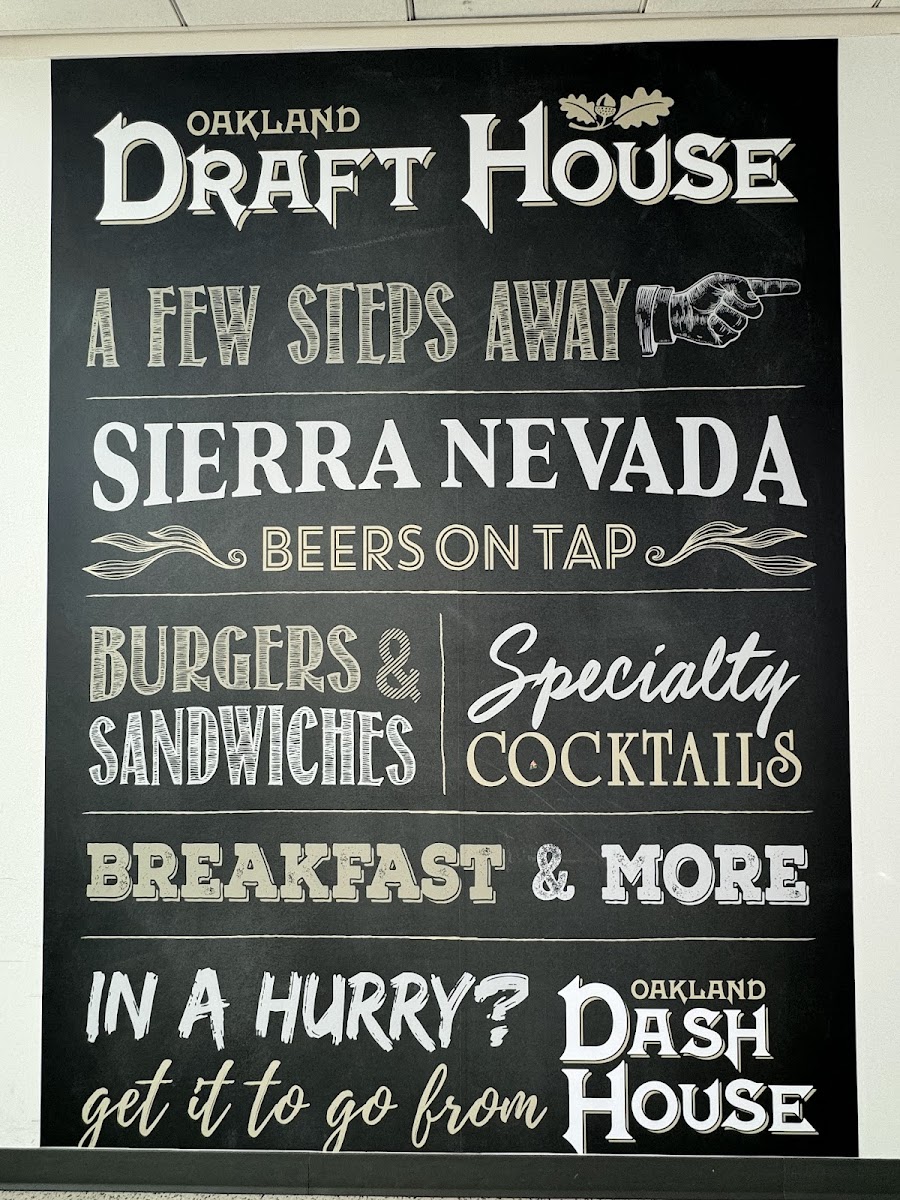 OAKLAND
DRAFT HOUSE
A FEW STEPS AWAY
SIERRA NEVADA
BEERS ON TAP
BURGERS &
SANDWICHES
Specialty
COCKTAILS
BREAKFAST & MORE
IN A HURRY?
get it to go from
OAKLAND
DASH
HOUSE